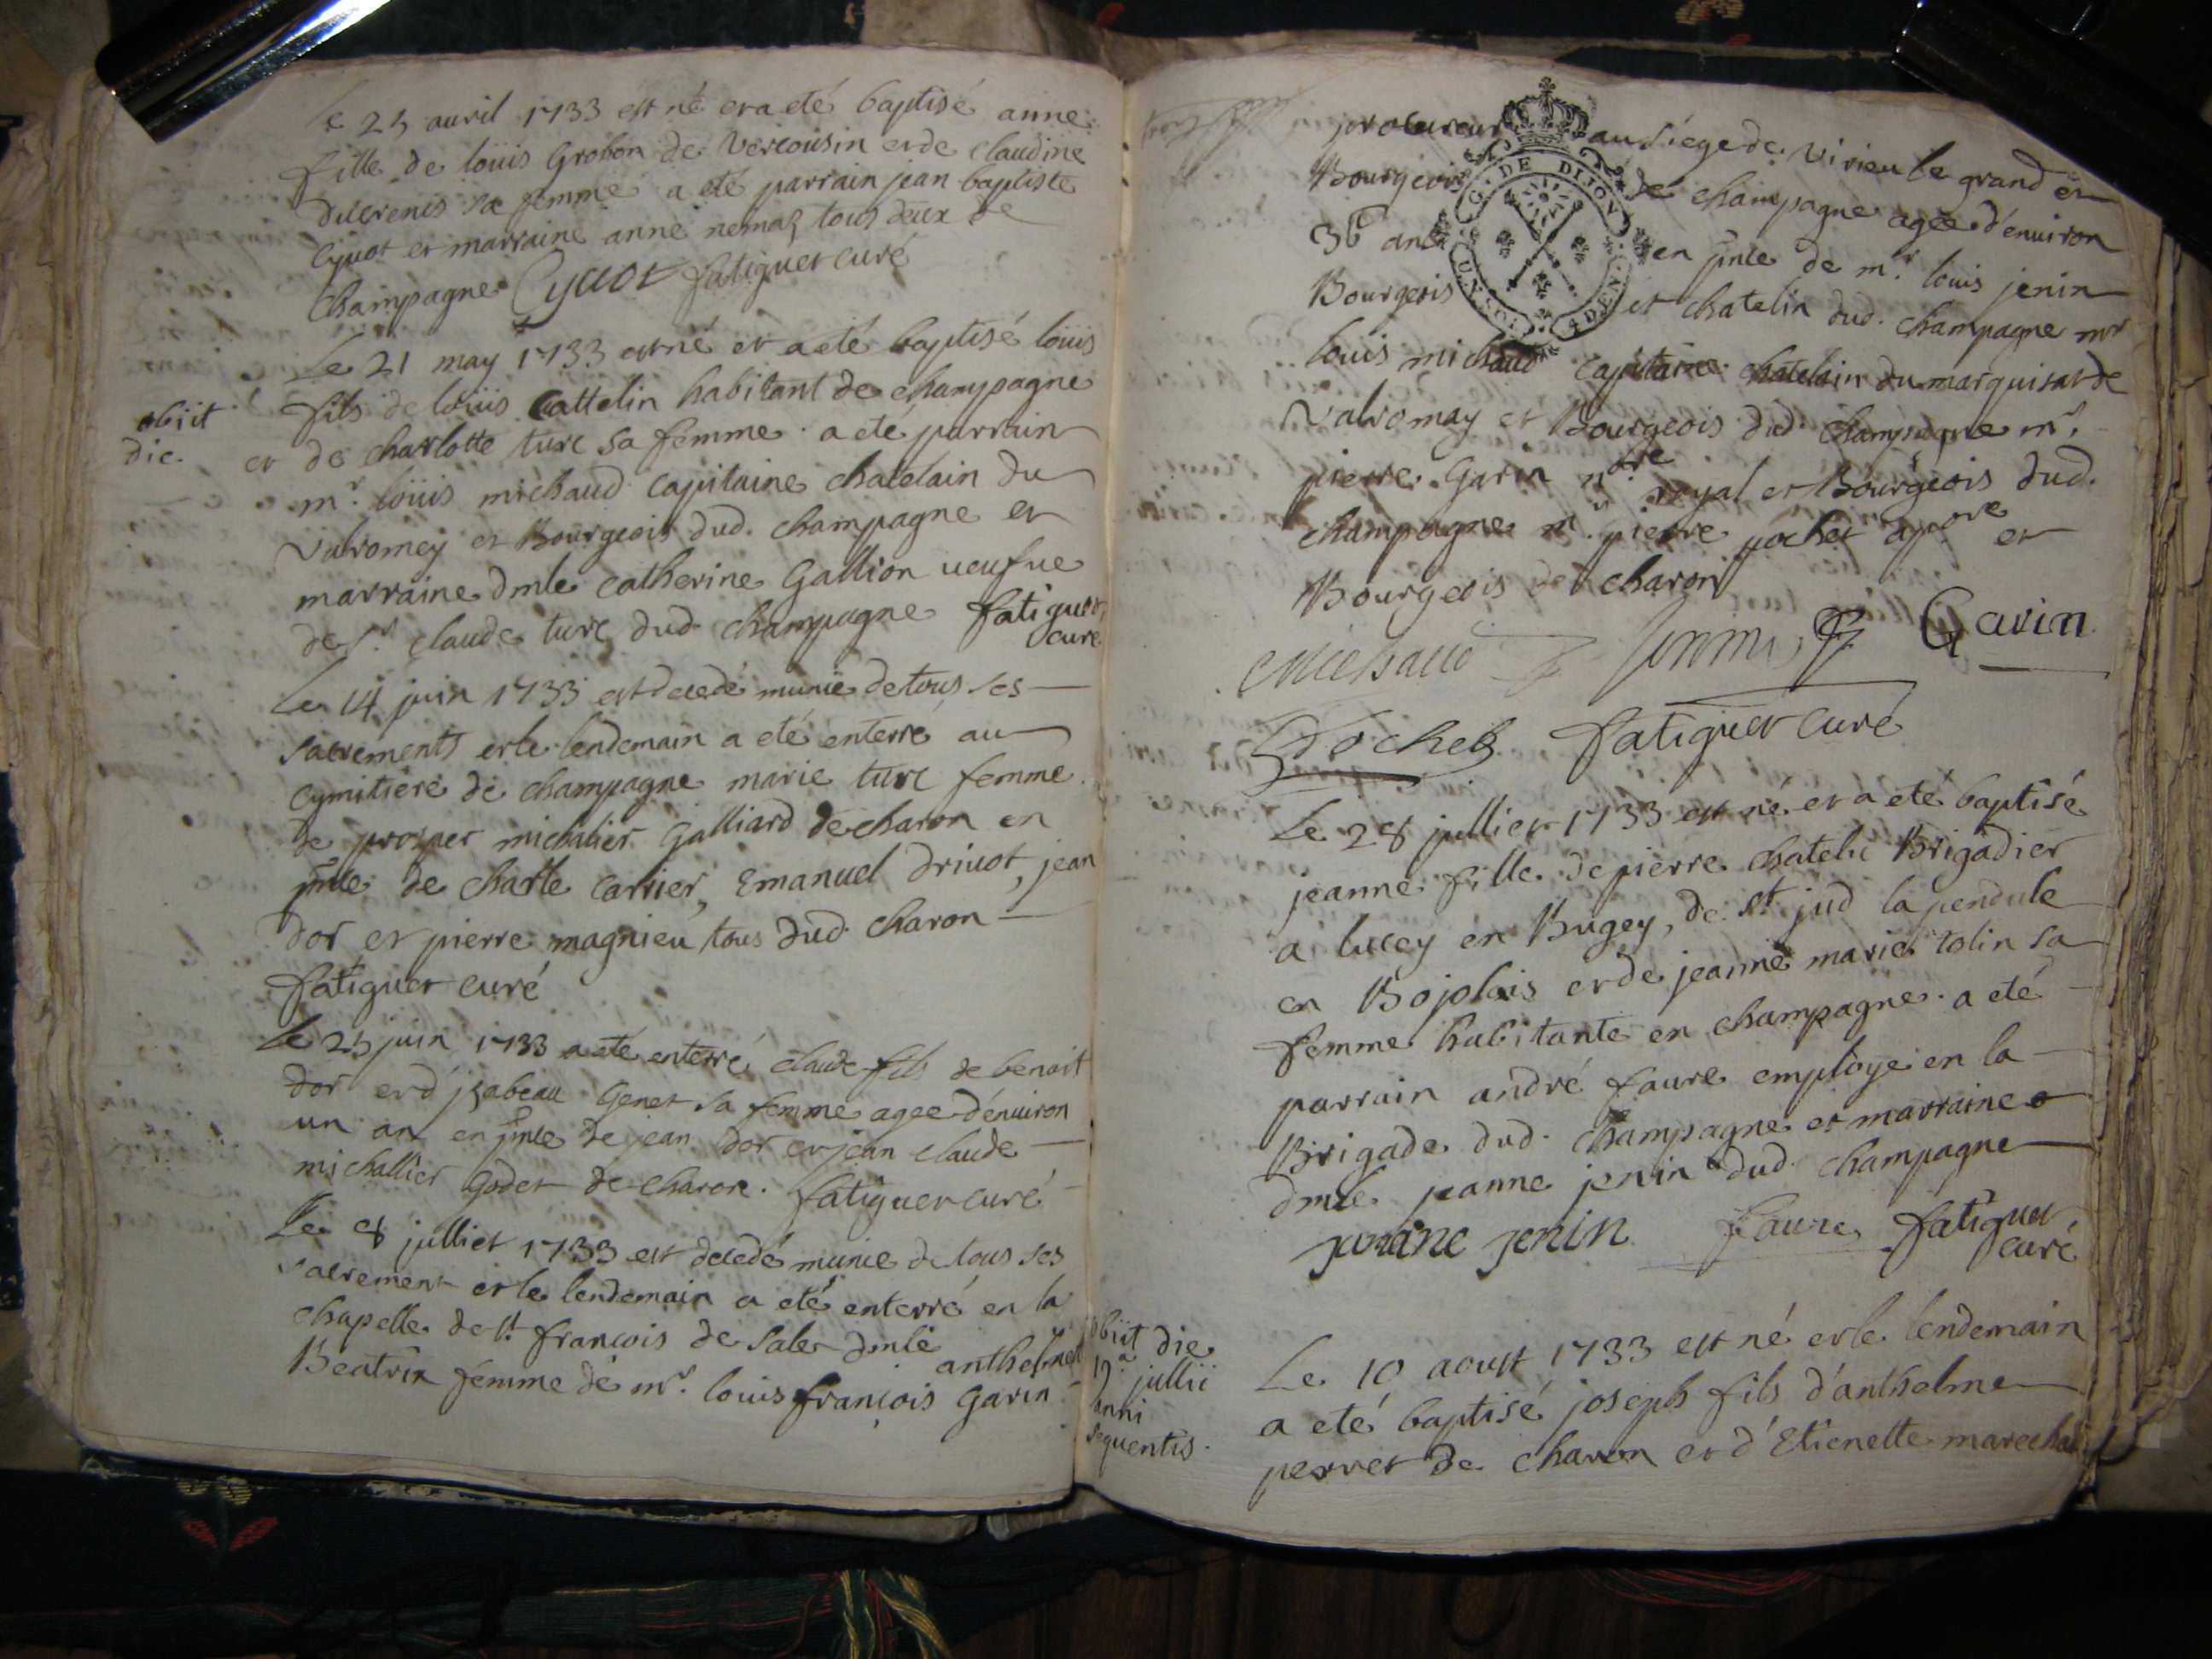 Le 25 auril 1733 est né et a eté baptisé anne
fille de loüis Grobon de Vercousin et de claudine
sa femme a eté parrain jean baptiste
Cyuot et marraine anne nemoz tous deux de
champagne Cyuot fatiguet curé
Le 21 may 1733 est né et a eté baptisé loüis
fils de loüis Cattelin habitant de champagne
et de charlotte turc sa femme a ete parrain
mr. loüis michaud capitaine chatelain du
Valromey et Bourgeois dud. champagne et
marraine dmle catherine Gallion ueufue
de sr. claude turc dud champagne fatiguet
curé
obiit
die.
Le 14 juin 1733 est decedé munie de tous ses
sacrements et le lendemain a eté enterré au
cymitiere de champagne marie turc femme
de prosper michalier Galliard de charon en
pnce de charle carrier, Emanuel driuot, jean
dor et pierre magnieu tous dud. charon
fatiguet curé
Le 25 juin 1733 a eté enterré claude fils de benoit
dor et d'jzabeau Genet sa femme agee d'enuiron
un an en pnce de jean dor et jean claude
michallier Godet de charon. fatiguet curé
Le 8 julliet 1733 est decedé munie de tous ses
sacrement et le lendemain a eté enterré en la
chapelle de st. francois de sales dmle
anthelmett
Beatrix femme de mr. louis françois Garin
procureur au siege de virieu le grand et
Bourgeois de champagne agée d'enuiron
36 ans en pnce de mr. louis jenin
Bourgeois et chatelin dud. champagne mr
louis michaud capitaine chatelain du marquisat de
Valromay et Bourgeois dud. champagne mr.
pierre Garin nore royal et Bourgeois dud.
champagne mr. pierre pochet et
Bourgeois de charon
G. DE DIJON
Michaud Jenin Garin
Pochet fatiguet curé
Le 28 julliet 1733 est né et a eté baptisé
jeanne fille de pierre Brigadier
a lucey en Bugey, de st. jud la pendule
en Bojolais et de jeanne marie tolin sa
femme habitante en champagne. a eté
parrain andré faure employé en la
Brigade dud. champagne et marraine
dmle jeanne jenin dud. champagne
janne jenin faure fatiguet
curé
obiit die
19a jullii
anni
sequentis.
Le 10 aoust 1733 est né et le lendemain
a eté baptisé joseph fils d'anthelme
perret de charon et d'Etienette marechal